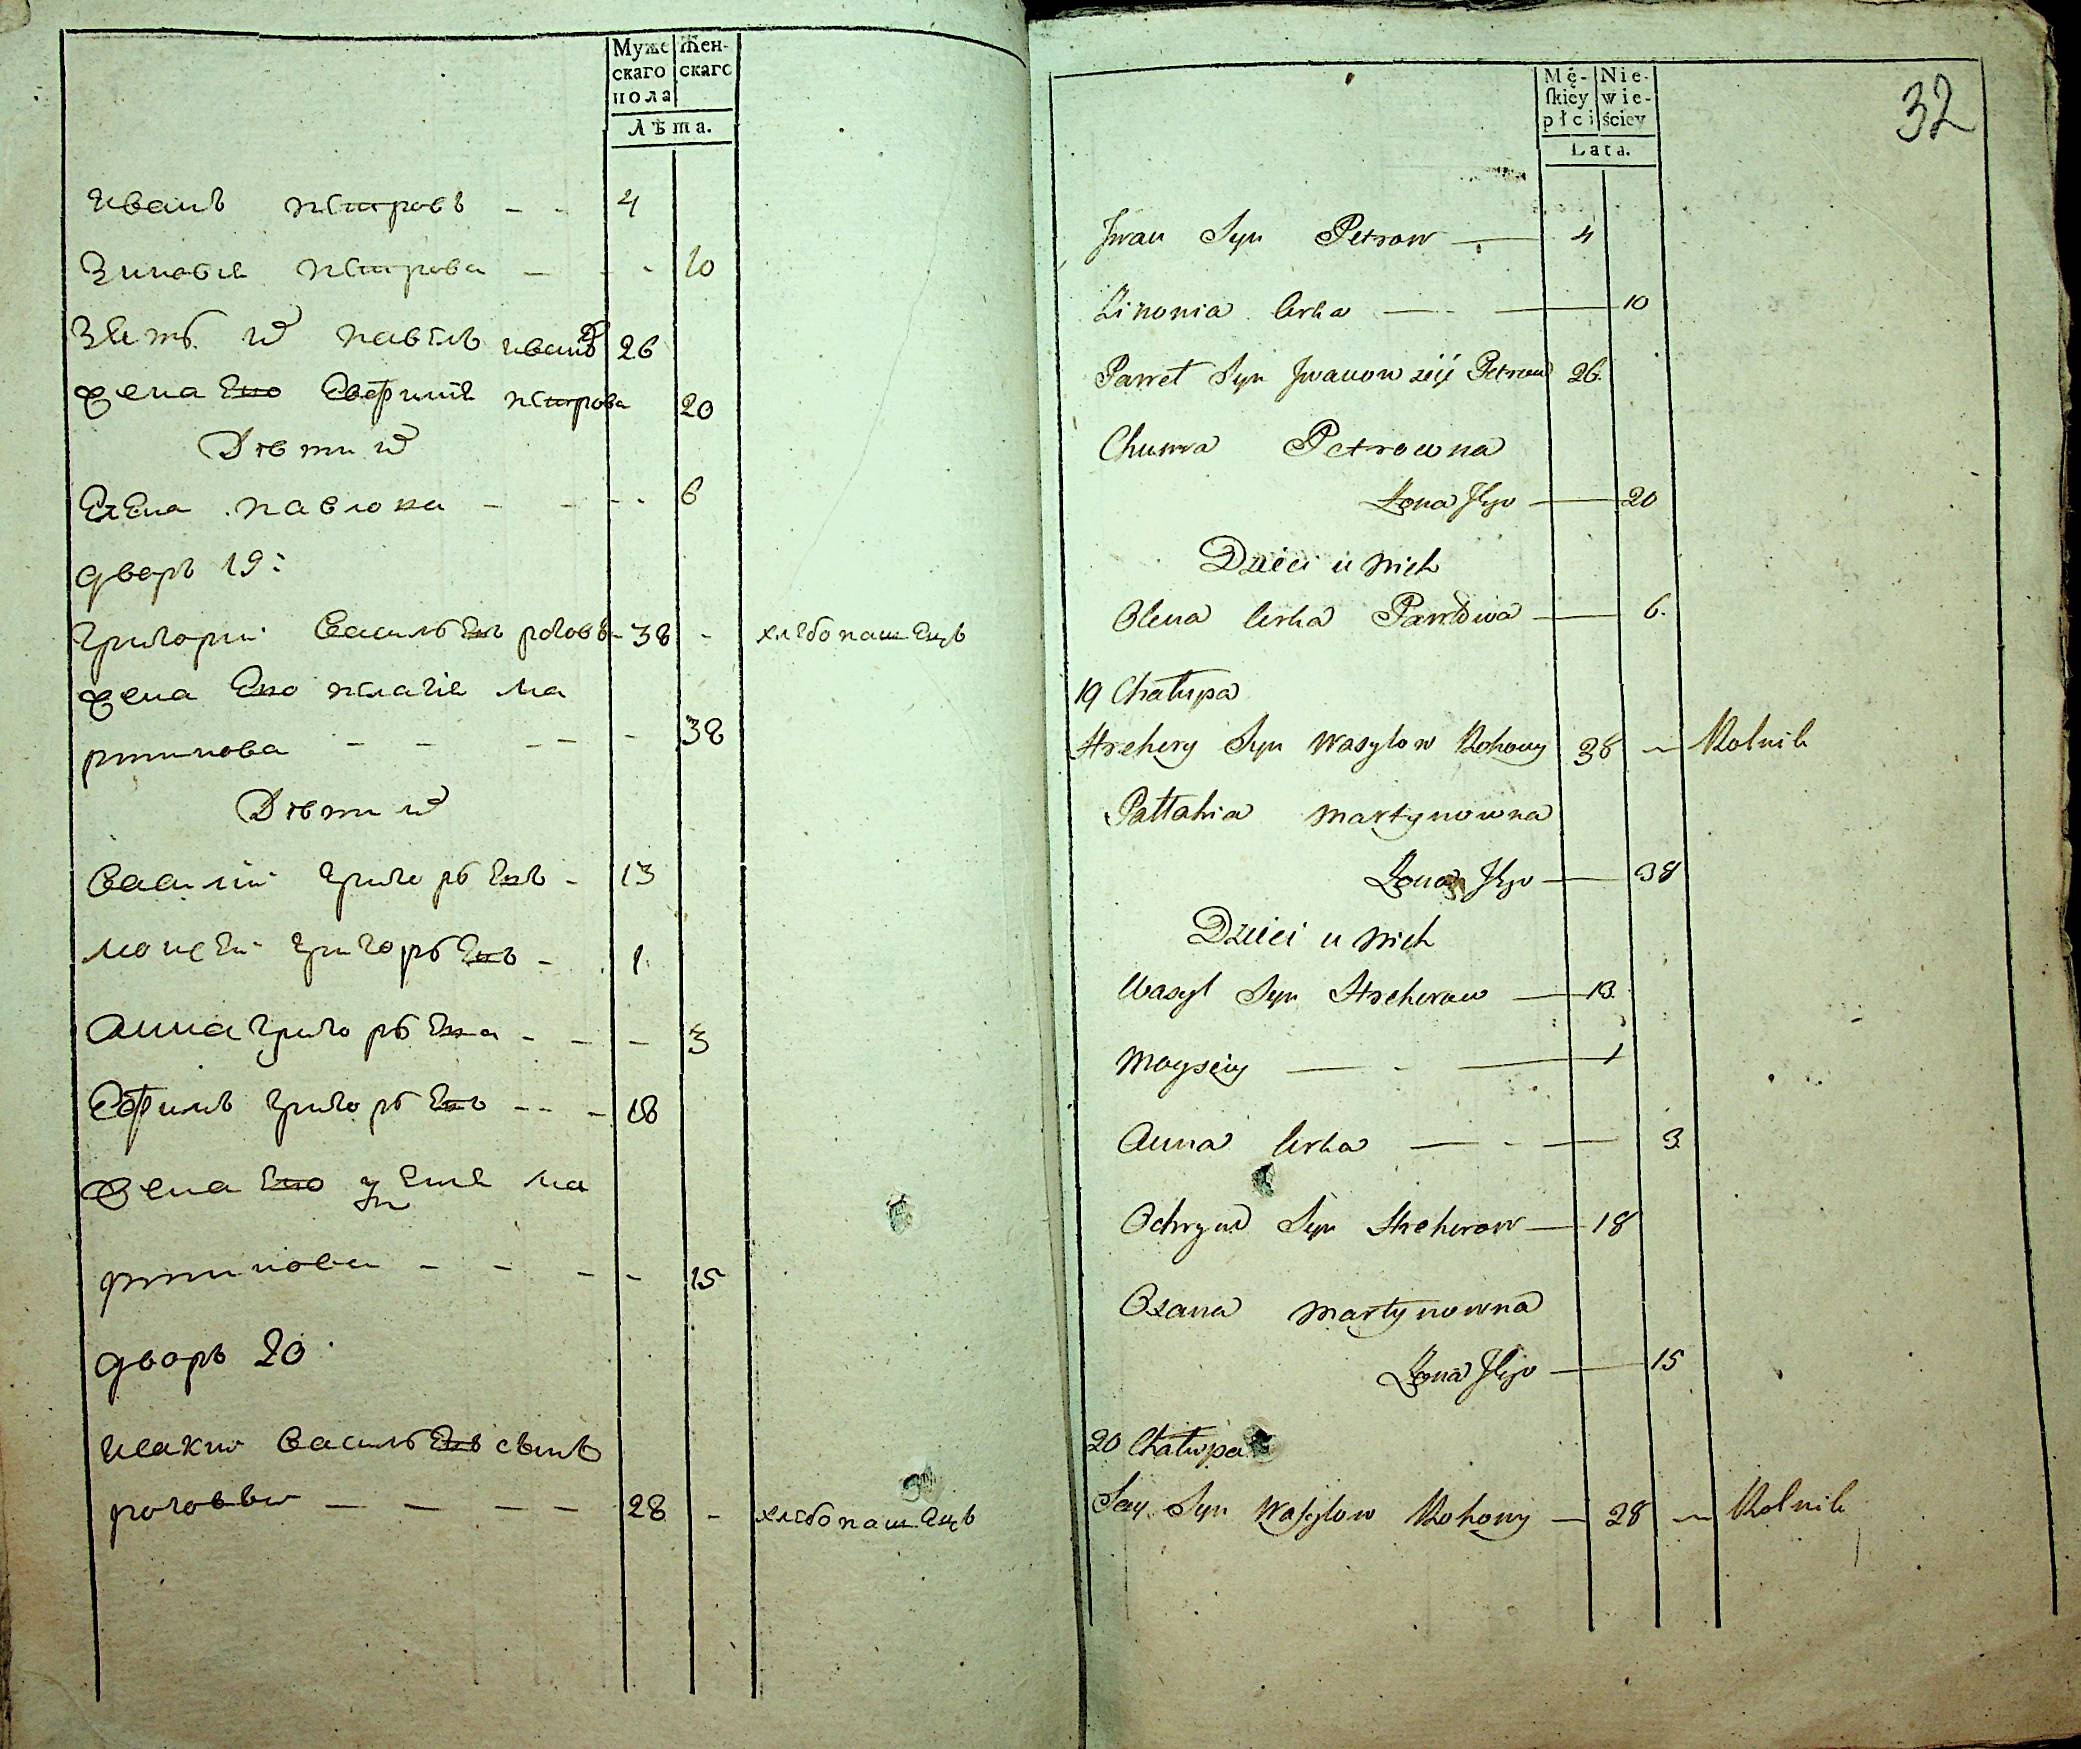 Муже Жен-
скаго скаго
пола
Лѣта.
Иванъ Петровъ - - 4
Зиновія Петрова - - - 10
Зять ихъ Павелъ Ивановъ 26
жена Его Евфимія Петрова 20
Дѣти ихъ
Елена Павлова - - - - 6
дворъ 19:
Григорій Васильевъ роговъ - 38 - хлебопашецъ
жена Его Пелагія Ма
ртинова - - - - - 38
Дѣти ихъ
Василій Григорьевъ - 13
Моисей Григорьевъ - 1
Анна Григорьева - - - 3
Ефимъ Григорьевъ - - - 18
жена Его Ма
ртинова - - - - 15
дворъ 20
Васильевъ сынъ
- - - - 28 - хлебопашецъ
32
Mę- Nie-
ſkiey wie-
płci ściey
Lata.
Jwan Syn Petrow — 4
Zinowia Corka — — 10
Paweł Syn Jwanow zięć Petrow 26.
Petrowna
Żona Jego — 20
Dzieci u Nich
Olena Corka Pawłowa — 6.
19 Chałupa
Hrehory Syn Wasylow Rohowy 38 — Rolnik
Pałłahia Martynowna
Żona Jego — 38
Dzieci u Nich
Wasyl Syn Hrehorow — 13.
Moysiey — - — 1
Anna Corka — - — 3
Ochrym Syn Hrehorow — 18
Oxana Martynowna
Żona Jego — 15
20 Chałupa
Syn Wasylow Rohowy — 28 — Rolnik